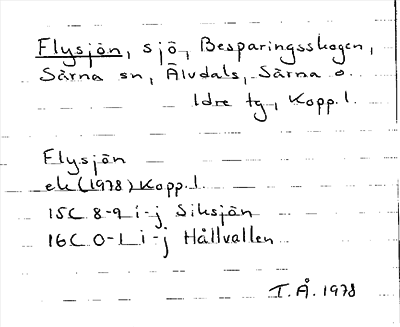 Flysjön, sjö, Besparingsskogen,
Särna sn, Älvdals, Särna o.
Idre tg, Kopp. l.
Flysjön
ek (1978) Kopp. l.
15C 8-9 i-j Siksjön
16C 0-1 i-j Hållvallen
T.Å. 1978